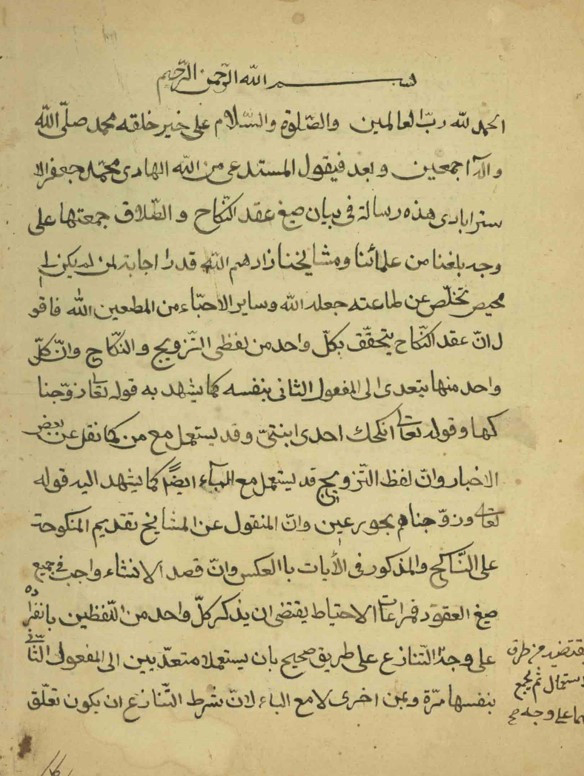 بسم الله الرحمن الرحیم
الحمد لله ربّ العالمین والصّلوة والسّلام علی خیر خلقه محمد صلّی الله
واله اجمعین وبعد فیقول المستدعی من الله الهادی محمّد جعفر الا
سترابادی هذه رسالة فی بیان صیغ عقد النّکاح والطّلاق جمعتها علی
وجه بلغنا من علمائنا ومشایخنا زادهم الله قدرا اجابة لمن لم یکن لی
محیص تخلّص عن طاعته جعله الله وسایر الاحبّاء من المطعین الله فاقو
ل انّ عقد النّکاح یتحقّق بکلّ واحد من لفظی التّزویج والنّکاح وانّ کلّ
واحد منها یتعدی الی المفعول الثانی بنفسه کما یشهد به قوله تعا زوّجنا
کها وقوله تعالی انکحک احدی ابنتیّ وقد یستعمل مع من کما نقل عن بعض
الاخبار وانّ لفظ التّزویج قد یستعمل مع الباء ایضًا کما یشهد الیه قوله
تعالی وزوّجناهم بحور عین وانّ المنقول عن المشایخ تقدیم المنکوحة
علی النّاکح والمذکور فی الأیات باالعکس وانّ قصد الانشاء واجب فی جمیع
صیغ العقود فمراعات الاحتیاط یقتضی ان یذکر کلّ واحد من اللّفظین بانفراده
علی وجه التنازع علی طریق صحیح بان یستعملا متعدّیین الی المفعول الثّانی
بنفسها مرّة وبمن اخری لا مع الباء لانّ شرط التّنازع ان یکون تعلّق
من طرق
استعمال ثم یجمع
علی وجه صح